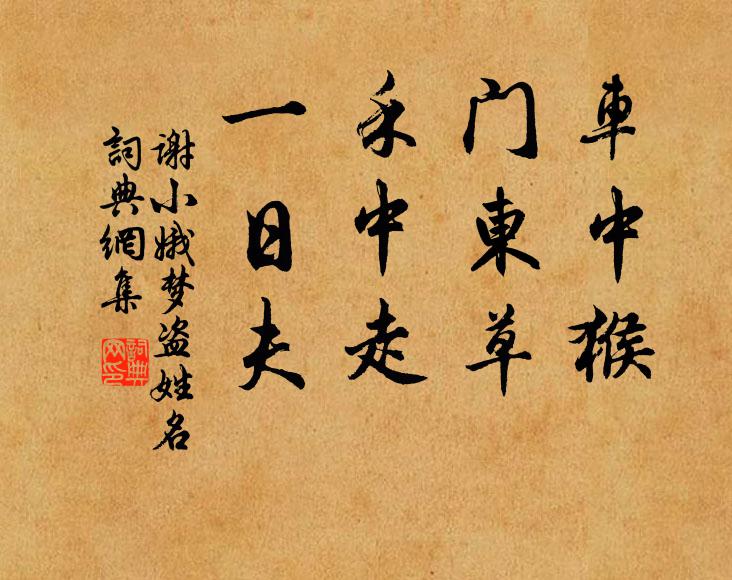 車中猴
门東草
禾中走
一日夫
谢小娥梦盗姓名
詞典網集
詞典网印